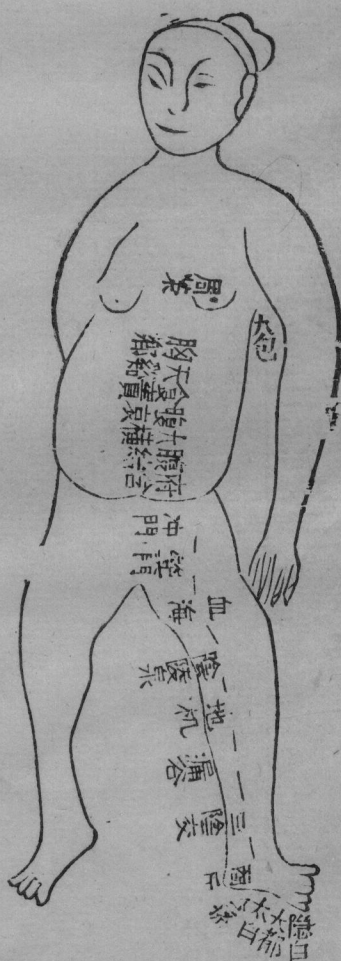 周荣
大包
胸鄉
天谿
食竇
腹哀
大橫
腹結
府舍
冲門
箕門
血海
陰陵泉
地机
漏谷
三陰交
商丘
公孫
太白
大都
隱白